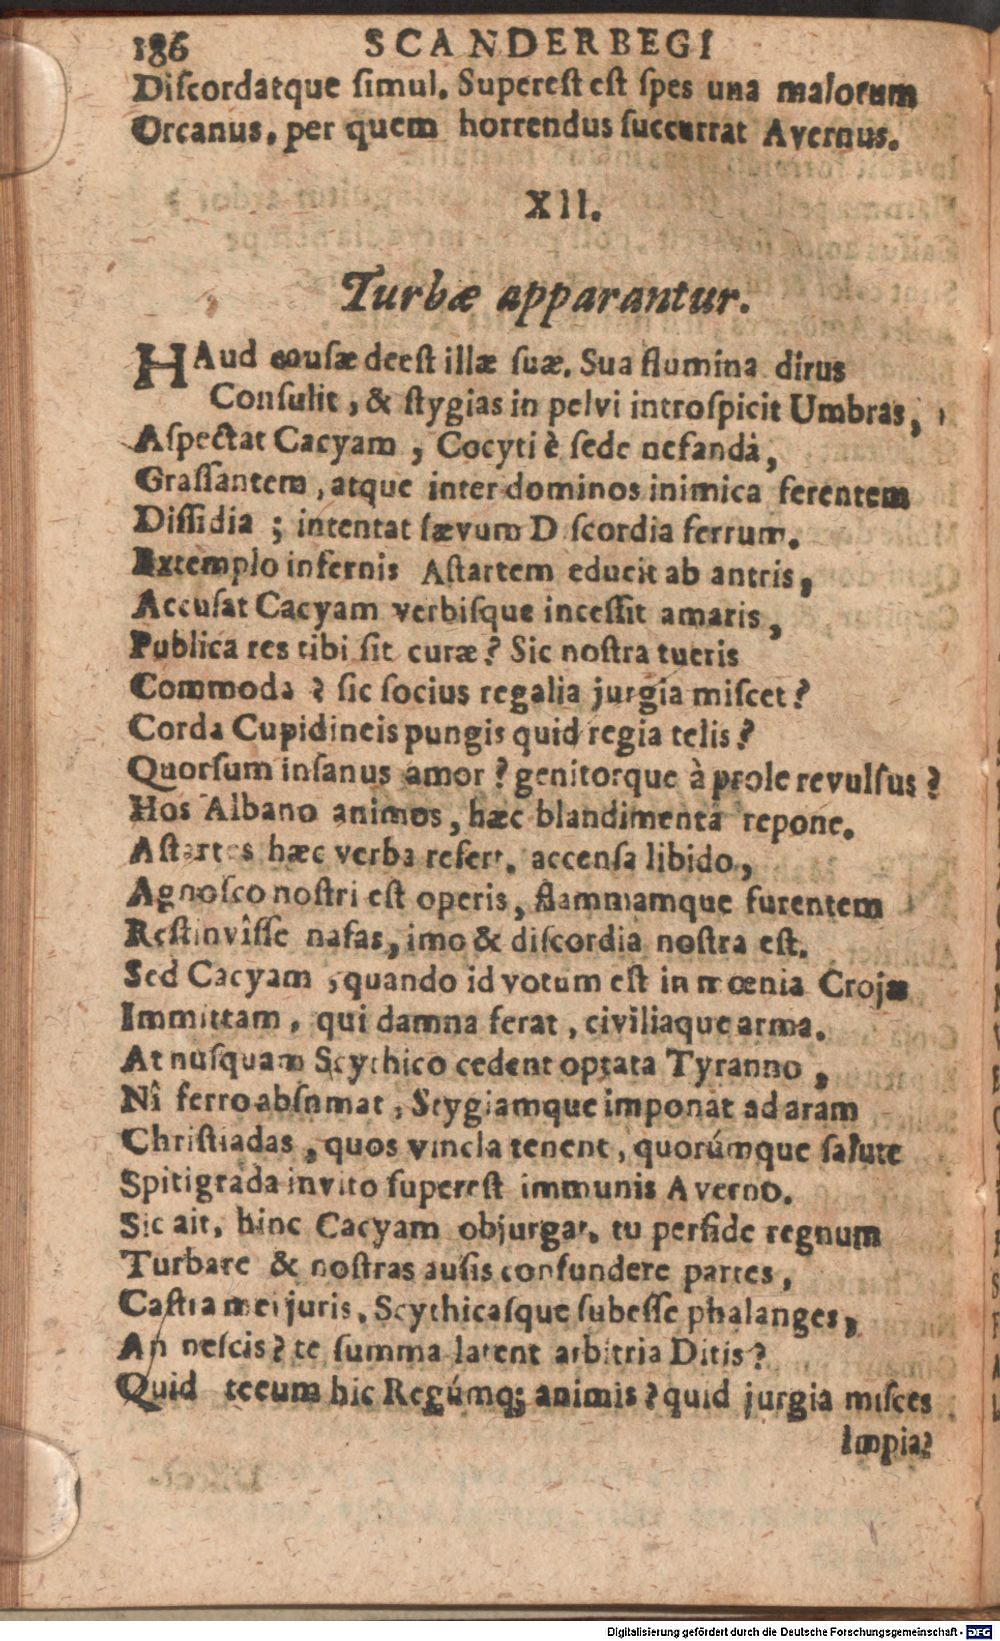 186 SCANDERBEGI
Diſcordatque ſimul. Supereſt eſt ſpes una malorum
Orcanus, per quem horrendus ſuccurrat Avernus.
XII.
Turbæ apparantur.
HAud cauſæ deeſt illæ ſuæ. Sua flumina dirus
Conſulit, & ſtygias in pelvi introſpicit Umbras,
Aſpectat Cacyam, Cocyti è ſede nefandâ,
Graſſantem, atque inter dominos inimica ferentem
Diſſidia; intentat ſævum D ſcordia ferrum.
Extemplo infernis Aſtartem educit ab antris,
Accuſat Cacyam verbiſque inceſſit amaris,
Publica res tibi ſit curæ? Sic noſtra tueris
Commoda? ſic ſocius regalia jurgia miſcet?
Corda Cupidineis pungis quid regia telis?
Quorſum inſanus amor? genitorque à prole revulſus?
Hos Albano animos, hæc blandimenta repone.
Aſtartes hæc verba refert. accenſa libido,
Agnoſco noſtri eſt operis, flammamque furentem
Reſtinvîſſe nafas, imo & diſcordia noſtra eſt.
Sed Cacyam, quando id votum eſt in mœnia Crojæ
Immittam, qui damna ferat, civiliaque arma.
At nuſquam Scythico cedent optata Tyranno,
Nî ferro abſumat, Stygiamque imponat ad aram
Chriſtiadas, quos vincla tenent, quorúmque ſalute
Spitigrada invito ſupereſt immunis Averno.
Sic ait, hinc Cacyam objurgat. tu perfide regnum
Turbare & noſtras auſis confundere partes,
Caſtra mei juris, Scythicaſque ſubeſſe phalanges,
An neſcis? te ſumma latent arbitria Ditis?
Quid tecum hic Regúmq; animis? quid jurgia miſces
Impia?
Digitalisierung gefördert durch die Deutsche Forschungsgemeinschaft - DFG